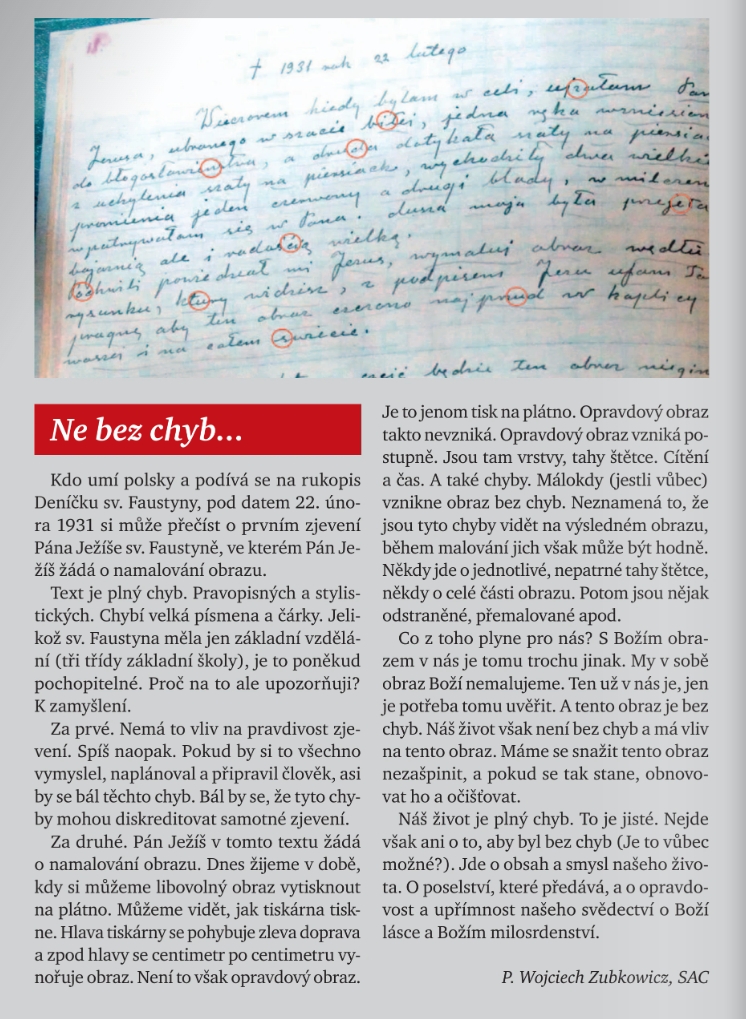 † 1931 rok 22 lutego
Wieczorem kiedy byłam w celi, ujrałam Pan
Jezusa, ubranego w szacie biłej, jedna ręka wzniesion
do błogosławieństwa, a druga dotykała szaty na piersiach
z uchylenia szaty na piersiach, wychodziły dwa wielki
promienia jeden czerwony a drugi blady, w milczen
wpatrywałam się w Pana. dusza moja była przejęta
bojaźnią ale i radością wielką.
Po chwili powiedział mi Jezus, wymaluj obraz wedłu
rysunku, ktury widzisz, z podpisem Jezu ufam
pragnę aby ten obraz czczono najprzud w kaplicy
waszej i na całem świecie.
czcić będzie ten obraz niezgin
Ne bez chyb...
Kdo umí polsky a podívá se na rukopis
Deníčku sv. Faustyny, pod datem 22. úno-
ra 1931 si může přečíst o prvním zjevení
Pána Ježíše sv. Faustyně, ve kterém Pán Je-
žíš žádá o namalování obrazu.
Text je plný chyb. Pravopisných a stylis-
tických. Chybí velká písmena a čárky. Jeli-
kož sv. Faustyna měla jen základní vzdělá-
ní (tři třídy základní školy), je to poněkud
pochopitelné. Proč na to ale upozorňuji?
K zamyšlení.
Za prvé. Nemá to vliv na pravdivost zje-
vení. Spíš naopak. Pokud by si to všechno
vymyslel, naplánoval a připravil člověk, asi
by se bál těchto chyb. Bál by se, že tyto chy-
by mohou diskreditovat samotné zjevení.
Za druhé. Pán Ježíš v tomto textu žádá
o namalování obrazu. Dnes žijeme v době,
kdy si můžeme libovolný obraz vytisknout
na plátno. Můžeme vidět, jak tiskárna tisk-
ne. Hlava tiskárny se pohybuje zleva doprava
a zpod hlavy se centimetr po centimetru vy-
nořuje obraz. Není to však opravdový obraz.
Je to jenom tisk na plátno. Opravdový obraz
takto nevzniká. Opravdový obraz vzniká po-
stupně. Jsou tam vrstvy, tahy štětce. Cítění
a čas. A také chyby. Málokdy (jestli vůbec)
vznikne obraz bez chyb. Neznamená to, že
jsou tyto chyby vidět na výsledném obrazu,
během malování jich však může být hodně.
Někdy jde o jednotlivé, nepatrné tahy štětce,
někdy o celé části obrazu. Potom jsou nějak
odstraněné, přemalované apod.
Co z toho plyne pro nás? S Božím obra-
zem v nás je tomu trochu jinak. My v sobě
obraz Boží nemalujeme. Ten už v nás je, jen
je potřeba tomu uvěřit. A tento obraz je bez
chyb. Náš život však není bez chyb a má vliv
na tento obraz. Máme se snažit tento obraz
nezašpinit, a pokud se tak stane, obnovo-
vat ho a očišťovat.
Náš život je plný chyb. To je jisté. Nejde
však ani o to, aby byl bez chyb (Je to vůbec
možné?). Jde o obsah a smysl našeho živo-
ta. O poselství, které předává, a o opravdo-
vost a upřímnost našeho svědectví o Boží
lásce a Božím milosrdenství.
P. Wojciech Zubkowicz, SAC